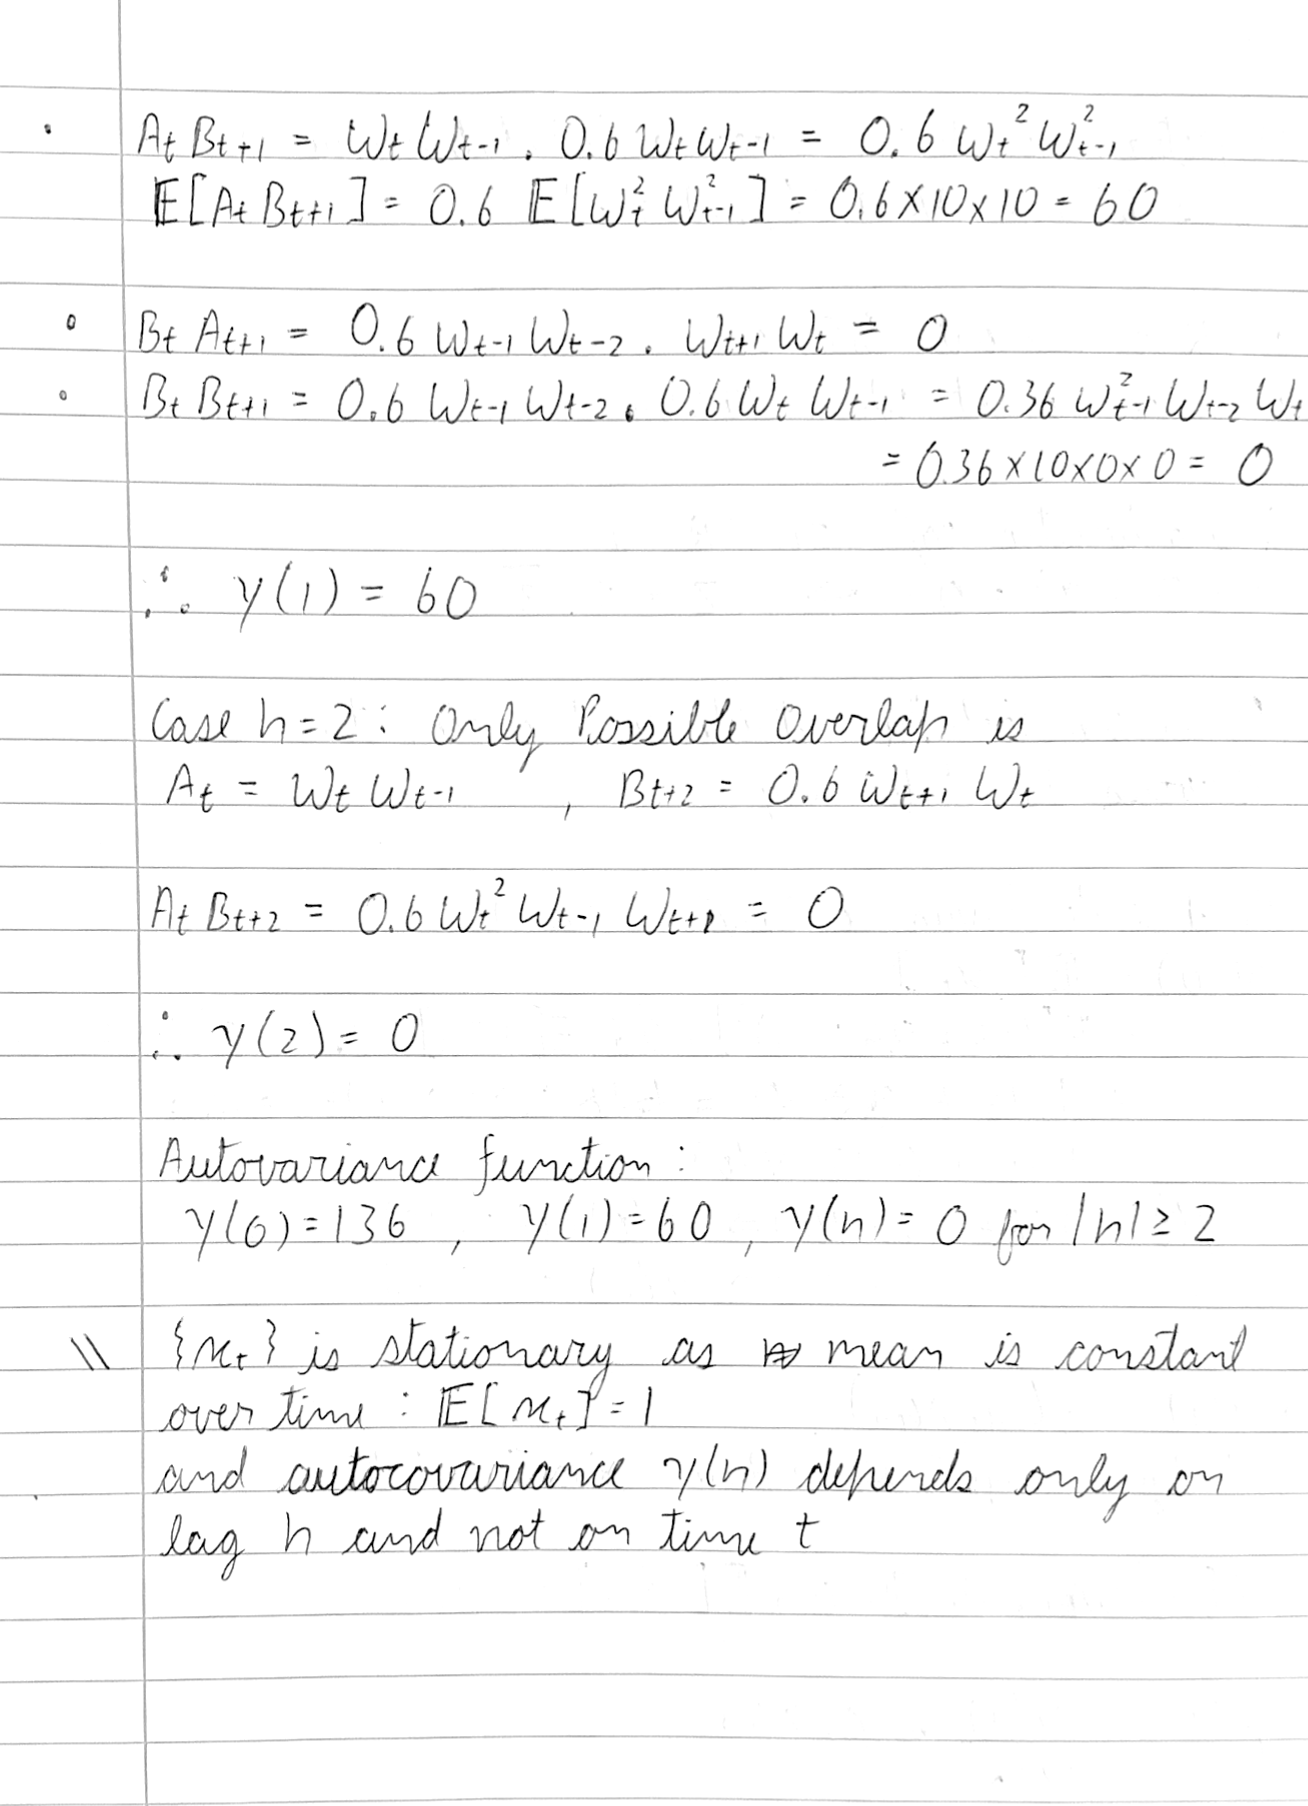 • A_t B_{t+1} = W_t W_{t-1} . 0.6 W_t W_{t-1} = 0.6 W_t² W_{t-1}²
𝔼[A_t B_{t+1}] = 0.6 𝔼[W_t² W_{t-1}²] = 0.6 × 10 × 10 = 60
• B_t A_{t+1} = 0.6 W_{t-1} W_{t-2} . W_{t+1} W_t = 0
• B_t B_{t+1} = 0.6 W_{t-1} W_{t-2} . 0.6 W_t W_{t-1} = 0.36 W_{t-1}² W_{t-2} W_t
= 0.36 × 10 × 0 × 0 = 0
∴ γ(1) = 60
Case h=2 : Only Possible Overlap is
A_t = W_t W_{t-1} , B_{t+2} = 0.6 W_{t+1} W_t
A_t B_{t+2} = 0.6 W_t² W_{t-1} W_{t+1} = 0
∴ γ(2) = 0
Autovariance function :
γ(0) = 136 , γ(1) = 60 , γ(h) = 0 for |h| ≥ 2
\\ {x_t} is stationary as mean is constant
over time : 𝔼[x_t] = 1
and autocovariance γ(h) depends only on
lag h and not on time t